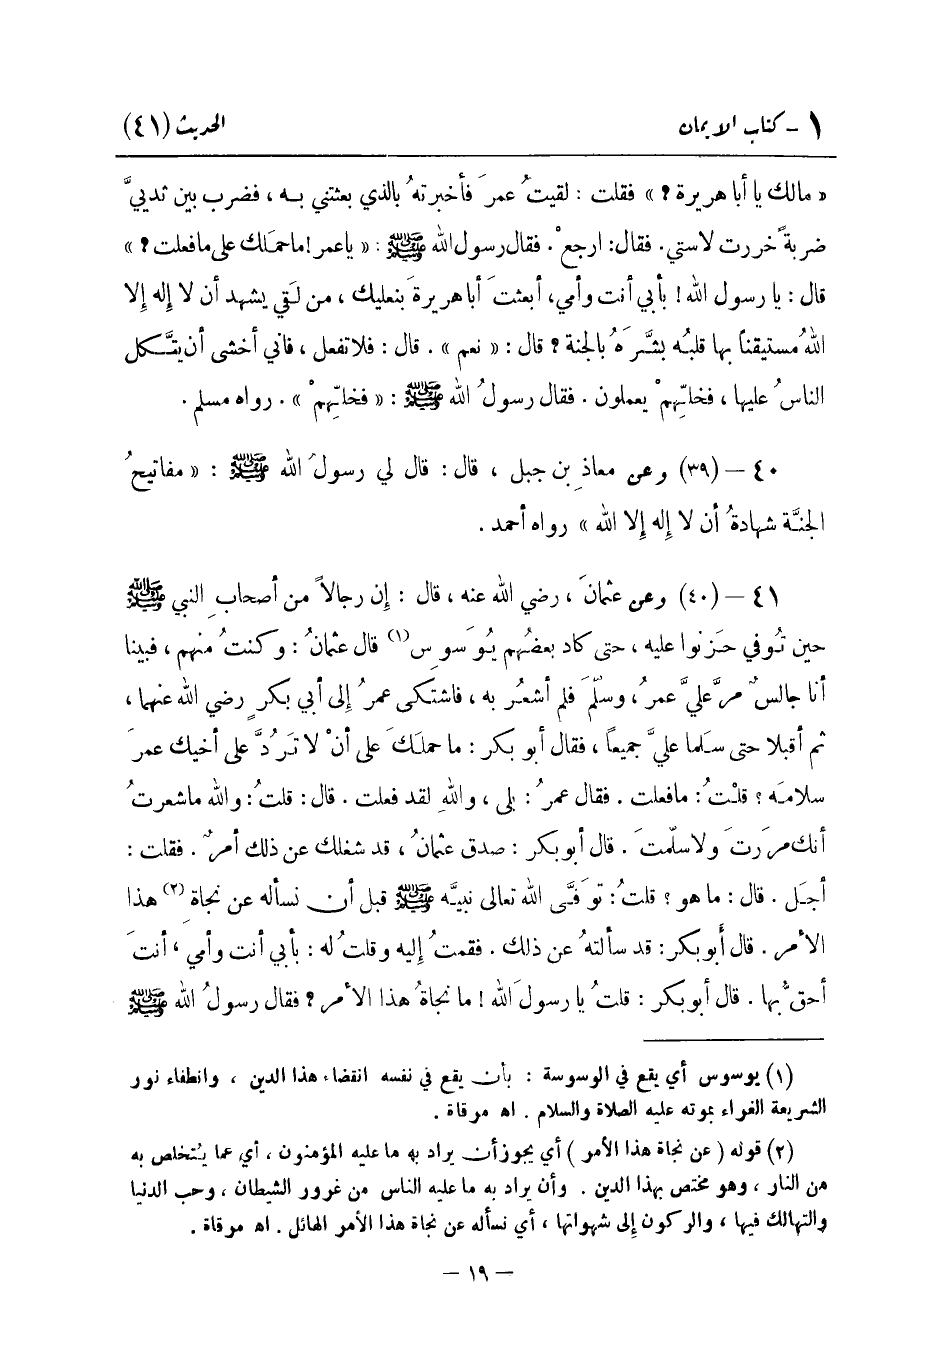 ١ - كتاب الايمان الحديث (٤١)
« مالك يا أبا هريرة ؟ » فقلت : لقيتُ عمرَ فأخبرتهُ بالذي بعثتني به ، فضرب بين ثدييَّ
ضربةً خررت لاستي. فقال: ارجعْ. فقال رسول الله ﷺ : « يا عمر ! ما حملك على ما فعلت ؟ »
قال : يا رسول الله ! بأبي أنت وأمي، أبعثتَ أبا هريرةَ بنعليك ، من لقي يشهد أن لا إله إلا
اللهُ مستيقناً بها قلبُه بشَّرَهُ بالجنة ؟ قال : « نعم » . قال : فلا تفعل ، فاني أخشى أن يتَّكل
الناسُ عليها ، فخلِّهمْ يعملون . فقال رسولُ الله ﷺ : « فخلِّهمْ » . رواه مسلم .
٤٠ - (٣٩) وعن معاذِ بن جبل ، قال : قال لي رسولُ الله ﷺ : « مفاتيحُ
الجنَّة شهادةُ أن لا إله إلا الله » رواه أحمد .
٤١ - (٤٠) وعن عثمانَ ، رضي الله عنه ، قال : إن رجالاً من أصحابِ النبي ﷺ
حين تُوفي حَزِنوا عليه ، حتى كاد بعضُهم يُوَسوِس(١) قال عثمانُ : وكنتُ منهم ، فبينا
أنا جالسٌ مرَّ عليَّ عمرُ، وسلّمَ فلم أشعُر به ، فاشتكى عمرُ إلى أبي بكرٍ رضي الله عنهما ،
ثم أقبلا حتى سلَّما عليَّ جميعاً ، فقال أبو بكر : ما حملكَ على أنْ لا تَرُدَّ على أخيك عمرَ
سلامَه ؟ قلتُ : ما فعلت . فقال عمرُ : بلى ، واللهِ لقد فعلت . قال : قلتُ : والله ما شعرتُ
أنك مررتَ ولا سلَّمتَ . قال أبو بكر : صدق عثمانُ ، قد شغلك عن ذلك أمرٌ . فقلت :
أجَل . قال : ما هو ؟ قلتُ : توَفَّى الله تعالى نبيَّه ﷺ قبل أن نسأله عن نجاةِ (٢) هذا
الأمر . قال أبو بكر : قد سألتهُ عن ذلك . فقمتُ إليه وقلتُ له : بأبي أنت وأمي ، أنتَ
أحقُّ بها . قال أبو بكر : قلتُ يا رسولَ الله ! ما نجاةُ هذا الأمر ؟ فقال رسولُ الله ﷺ
(١) يوسوس أي يقع في الوسوسة : بأن يقع في نفسه انقضاء هذا الدين ، وانطفاء نور
الشريعة الغراء بموته عليه الصلاة والسلام . اه مرقاة .
(٢) قوله ( عن نجاة هذا الأمر ) أي يجوز أن يراد به ما عليه المؤمنون ، أي عما يُتخلص به
من النار ، وهو مختص بهذا الدين . وأن يراد به ما عليه الناس من غرور الشيطان ، وحب الدنيا
والتهالك فيها ، والركون إلى شهواتها ، أي نسأله عن نجاة هذا الأمر الهائل . اه مرقاة .
- ١٩ -